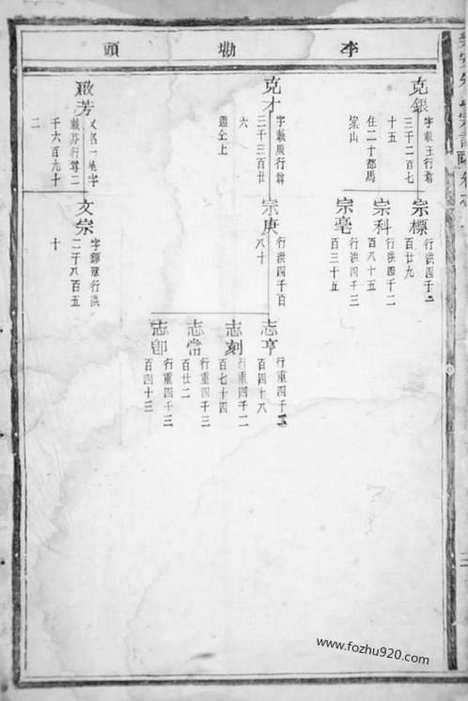 李勘頭
克銀
字載玉行尊
三千二百七
十五
住二十都馬
梁山
宗標
行洪四千二
百廿九
宗科
行洪四千二
百八十五
宗亳
行洪四千三
百三十五
克才
字載展行尊
三千三百廿
六
宗庚
行洪四千百
八十
志亨
行重四千
百四十八
志刻
行重四千二
百七十四
志常
行重四千三
百廿二
志卽
行重四千三
百四十三
啟芳
又名一
字
載芬行尊二
千六百九十
二
文宗
字
行洪
二千八百五
十
www.fozhu920.com